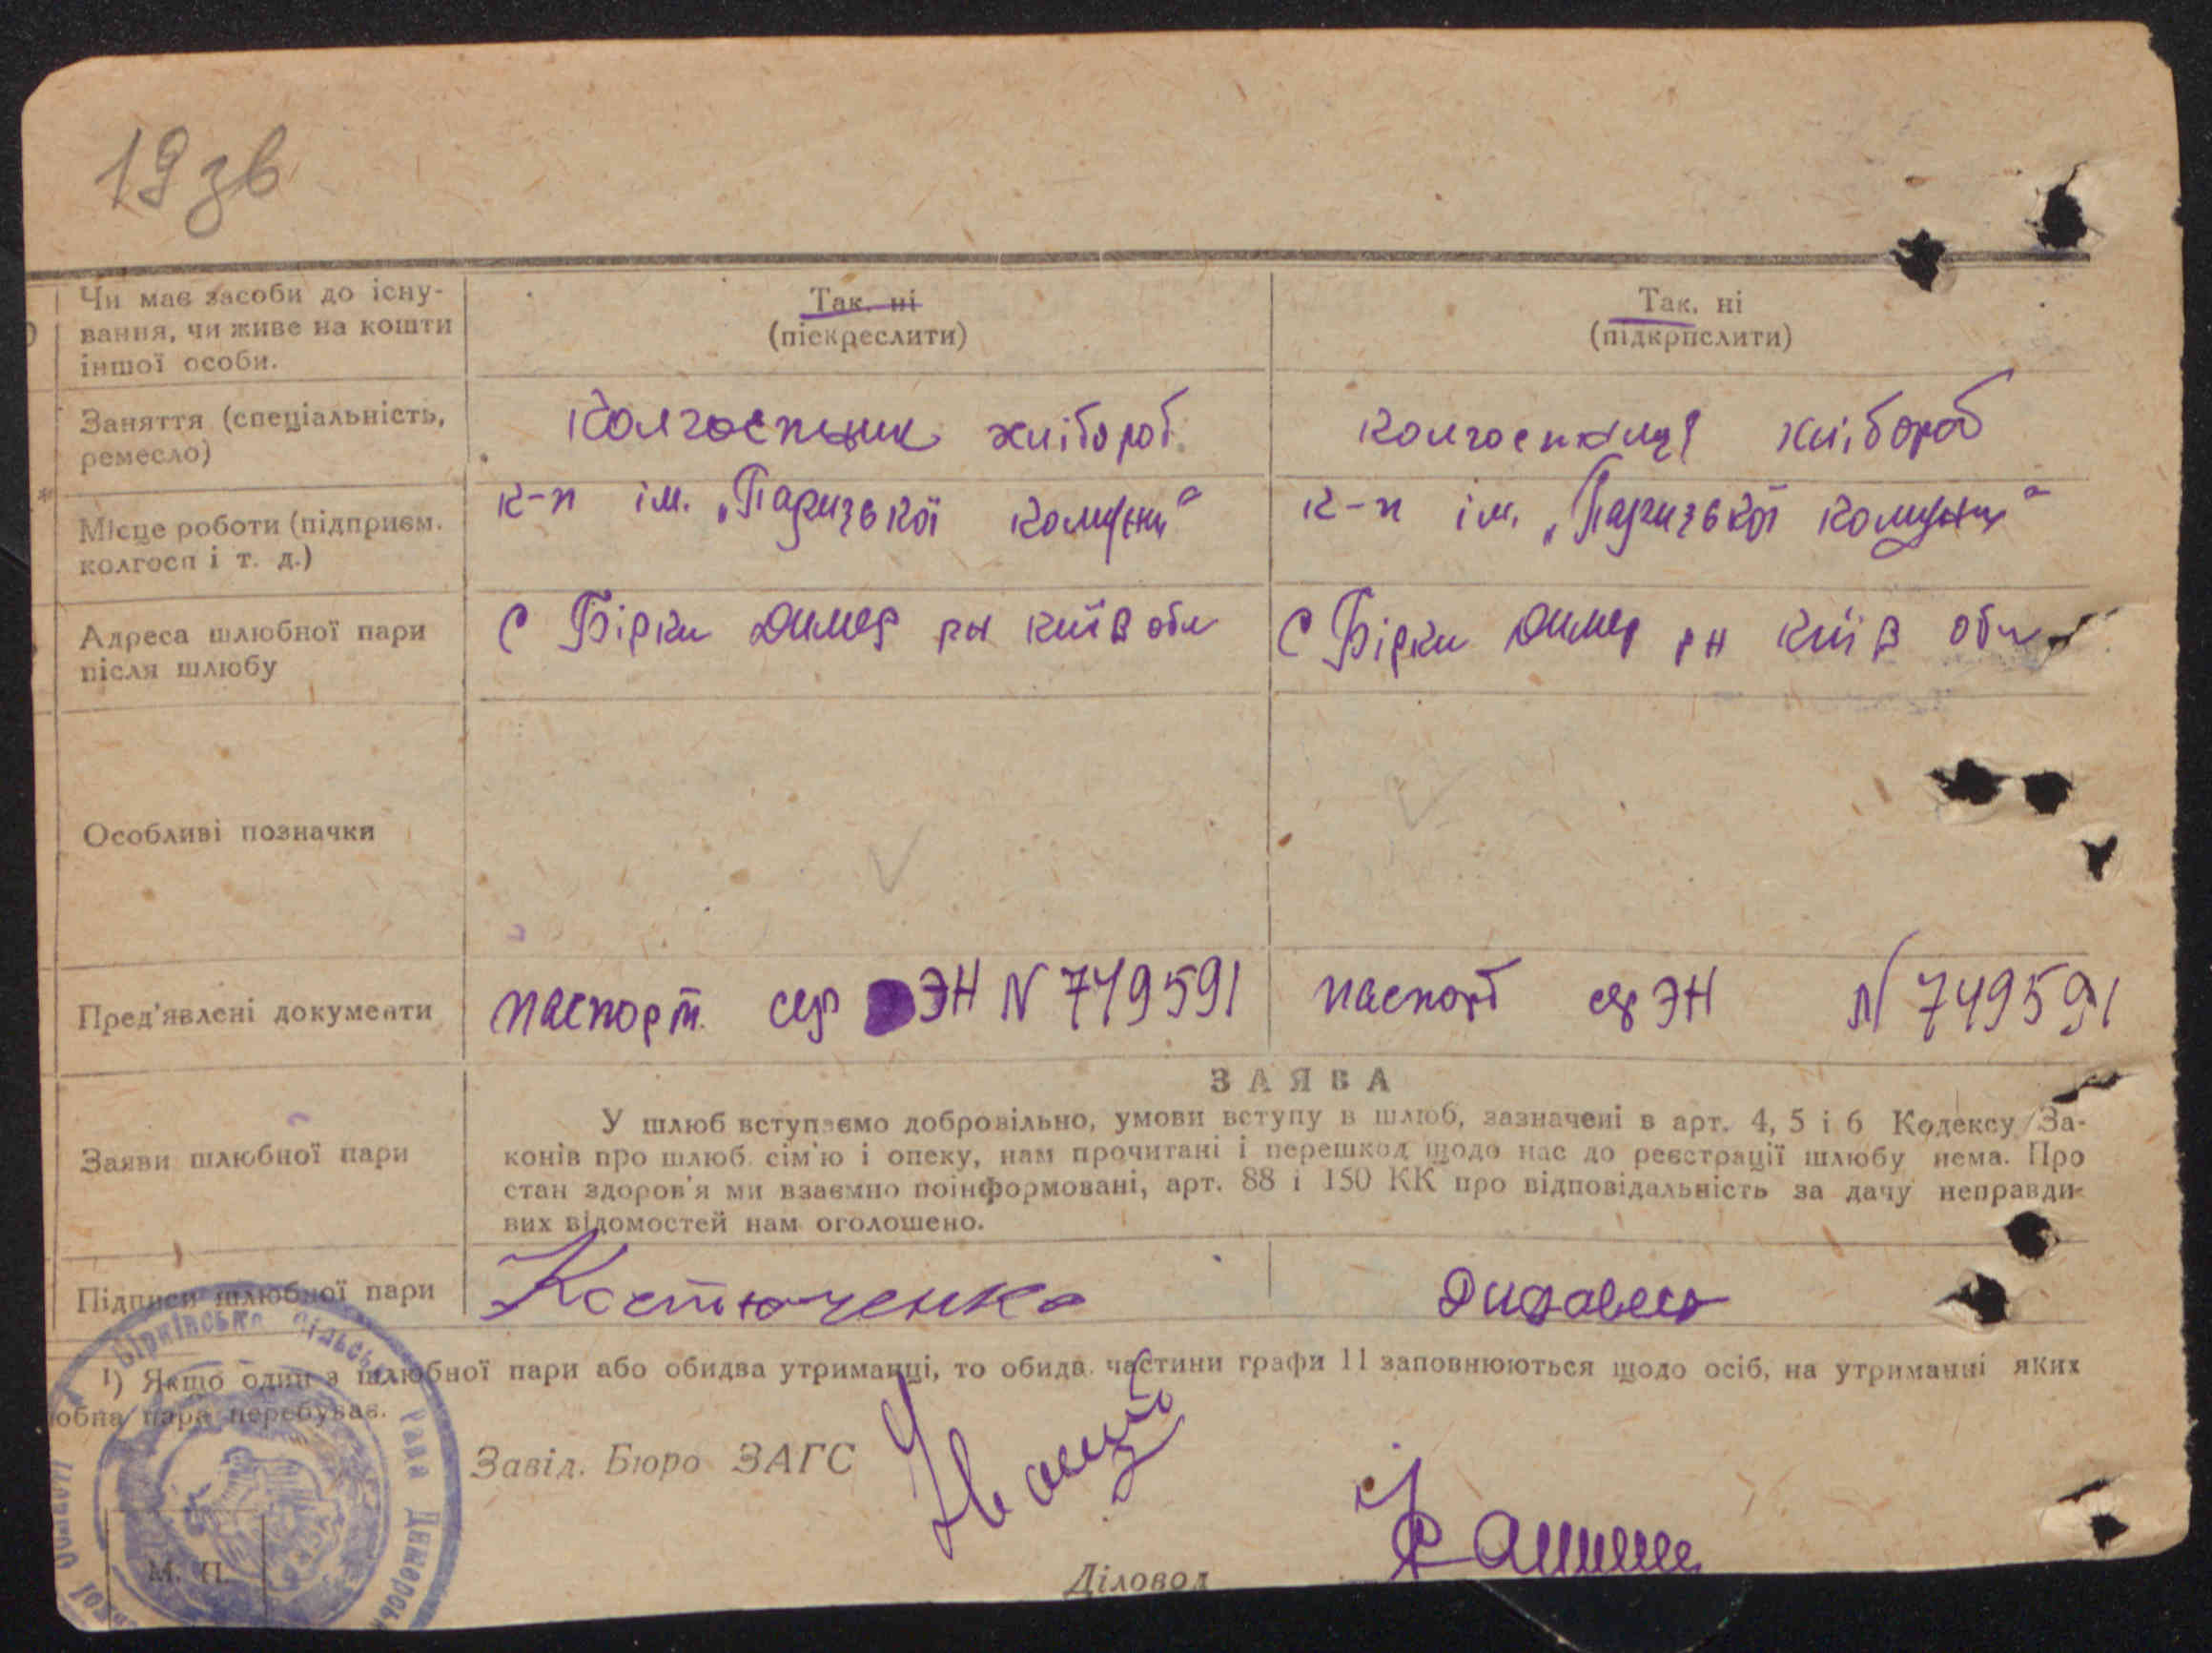 19 зв
Чи має засоби до існу-
вання, чи живе на кошти
іншої особи.
Так. ні
(піскреслити)
Так. ні
(підкрпслити)
Заняття (спеціальність,
ремесло)
колгоспник хлібороб
колгоспниця хлібороб
Місце роботи (підприєм.
колгосп і т. д.)
к-п ім. „Паризької комуни"
к-п ім. „Паризької комуни"
Адреса шлюбної пари
після шлюбу
с Бірки Димер рн київ обл
с Бірки Димер рн київ обл
Особливі позначки
Пред'явлені документи
паспорт. сер ЭН N 749591
паспорт сер ЭН N 749591
Заяви шлюбної пари
ЗАЯВА
У шлюб вступаємо добровільно, умови вступу в шлюб, зазначені в арт. 4, 5 і 6 Кодексу За-
конів про шлюб. сім'ю і опеку, нам прочитані і перешкод щодо нас до реєстрації шлюбу нема. Про
стан здоров'я ми взаємно поінформовані, арт. 88 і 150 КК про відповідальність за дачу неправди-
вих відомостей нам оголошено.
Підписи шлюбної пари
Костюченко
1) Якщо один з шлюбної пари або обидва утриманці, то обидв. частини графи 11 заповнюються щодо осіб, на утриманні яких
обна пара перебуває.
Завід. Бюро ЗАГС
Діловод
М. П.
Бірківська сільська рада Димерськ
області